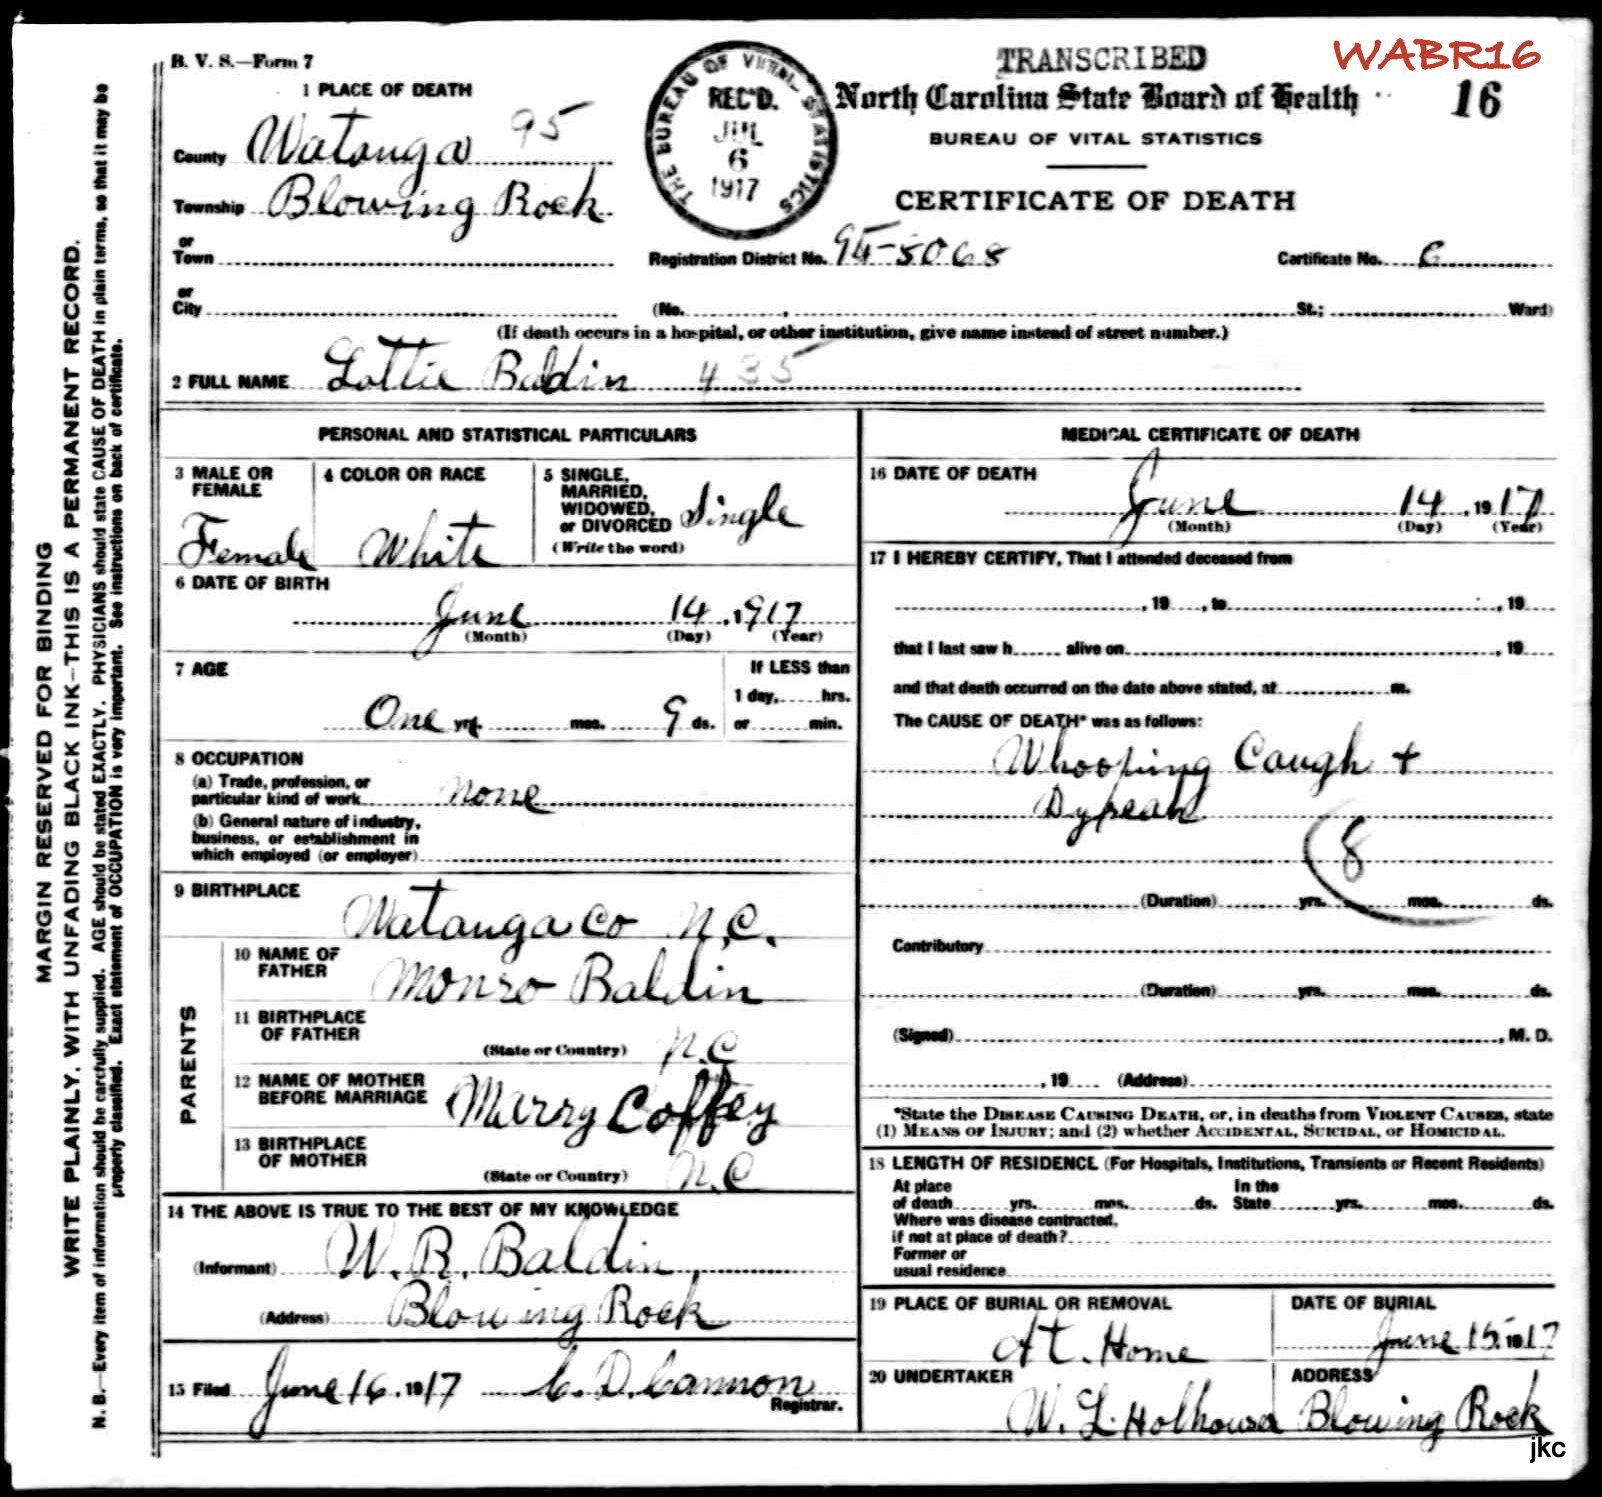 TRANSCRIBED
WABR16
B. V. S.—Form 7
1 PLACE OF DEATH
THE BUREAU OF VITAL STATISTICS
REC'D.
JUL
6
1917
North Carolina State Board of Health
16
BUREAU OF VITAL STATISTICS
County Watauga 95
CERTIFICATE OF DEATH
Township Blowing Rock
or
Town
Registration District No. 95-5068
Certificate No. 6
or
City (No. St.; Ward)
(If death occurs in a hospital, or other institution, give name instead of street number.)
2 FULL NAME Lottie Baldin 435
PERSONAL AND STATISTICAL PARTICULARS
3 MALE OR
FEMALE
Female
4 COLOR OR RACE
White
5 SINGLE,
MARRIED,
WIDOWED,
or DIVORCED
(Write the word)
Single
6 DATE OF BIRTH
June 14, 1917
(Month) (Day) (Year)
7 AGE
One yrs. mos. 9 ds.
If LESS than
1 day, hrs.
or min.
8 OCCUPATION
(a) Trade, profession, or
particular kind of work none
(b) General nature of industry,
business, or establishment in
which employed (or employer)
9 BIRTHPLACE
Watauga Co N.C.
PARENTS
10 NAME OF
FATHER
Monro Baldin
11 BIRTHPLACE
OF FATHER
(State or Country) N.C
12 NAME OF MOTHER
BEFORE MARRIAGE
Marry Coffey
13 BIRTHPLACE
OF MOTHER
(State or Country) N.C
14 THE ABOVE IS TRUE TO THE BEST OF MY KNOWLEDGE
(Informant) W. R. Baldin
(Address) Blowing Rock
15 Filed June 16, 1917 C. D. Cannon
Registrar.
MEDICAL CERTIFICATE OF DEATH
16 DATE OF DEATH
June 14, 1917
(Month) (Day) (Year)
17 I HEREBY CERTIFY, That I attended deceased from
, 19 , to , 19
that I last saw h alive on , 19
and that death occurred on the date above stated, at m.
The CAUSE OF DEATH* was as follows:
Whooping Caugh +
8
(Duration) yrs. mos. ds.
Contributory
(Duration) yrs. mos. ds.
(Signed) , M. D.
, 19 (Address)
*State the DISEASE CAUSING DEATH, or, in deaths from VIOLENT CAUSES, state
(1) MEANS OF INJURY; and (2) whether ACCIDENTAL, SUICIDAL, or HOMICIDAL.
18 LENGTH OF RESIDENCE (For Hospitals, Institutions, Transients or Recent Residents)
At place In the
of death yrs. mos. ds. State yrs. mos. ds.
Where was disease contracted,
if not at place of death?
Former or
usual residence
19 PLACE OF BURIAL OR REMOVAL
At Home
DATE OF BURIAL
June 15, 1917
20 UNDERTAKER
W. L. Holhouser
ADDRESS
Blowing Rock
jkc
MARGIN RESERVED FOR BINDING
WRITE PLAINLY, WITH UNFADING BLACK INK—THIS IS A PERMANENT RECORD.
N. B.—Every item of information should be carefully supplied. AGE should be stated EXACTLY. PHYSICIANS should state CAUSE OF DEATH in plain terms, so that it may be
properly classified. Exact statement of OCCUPATION is very important. See instructions on back of certificate.